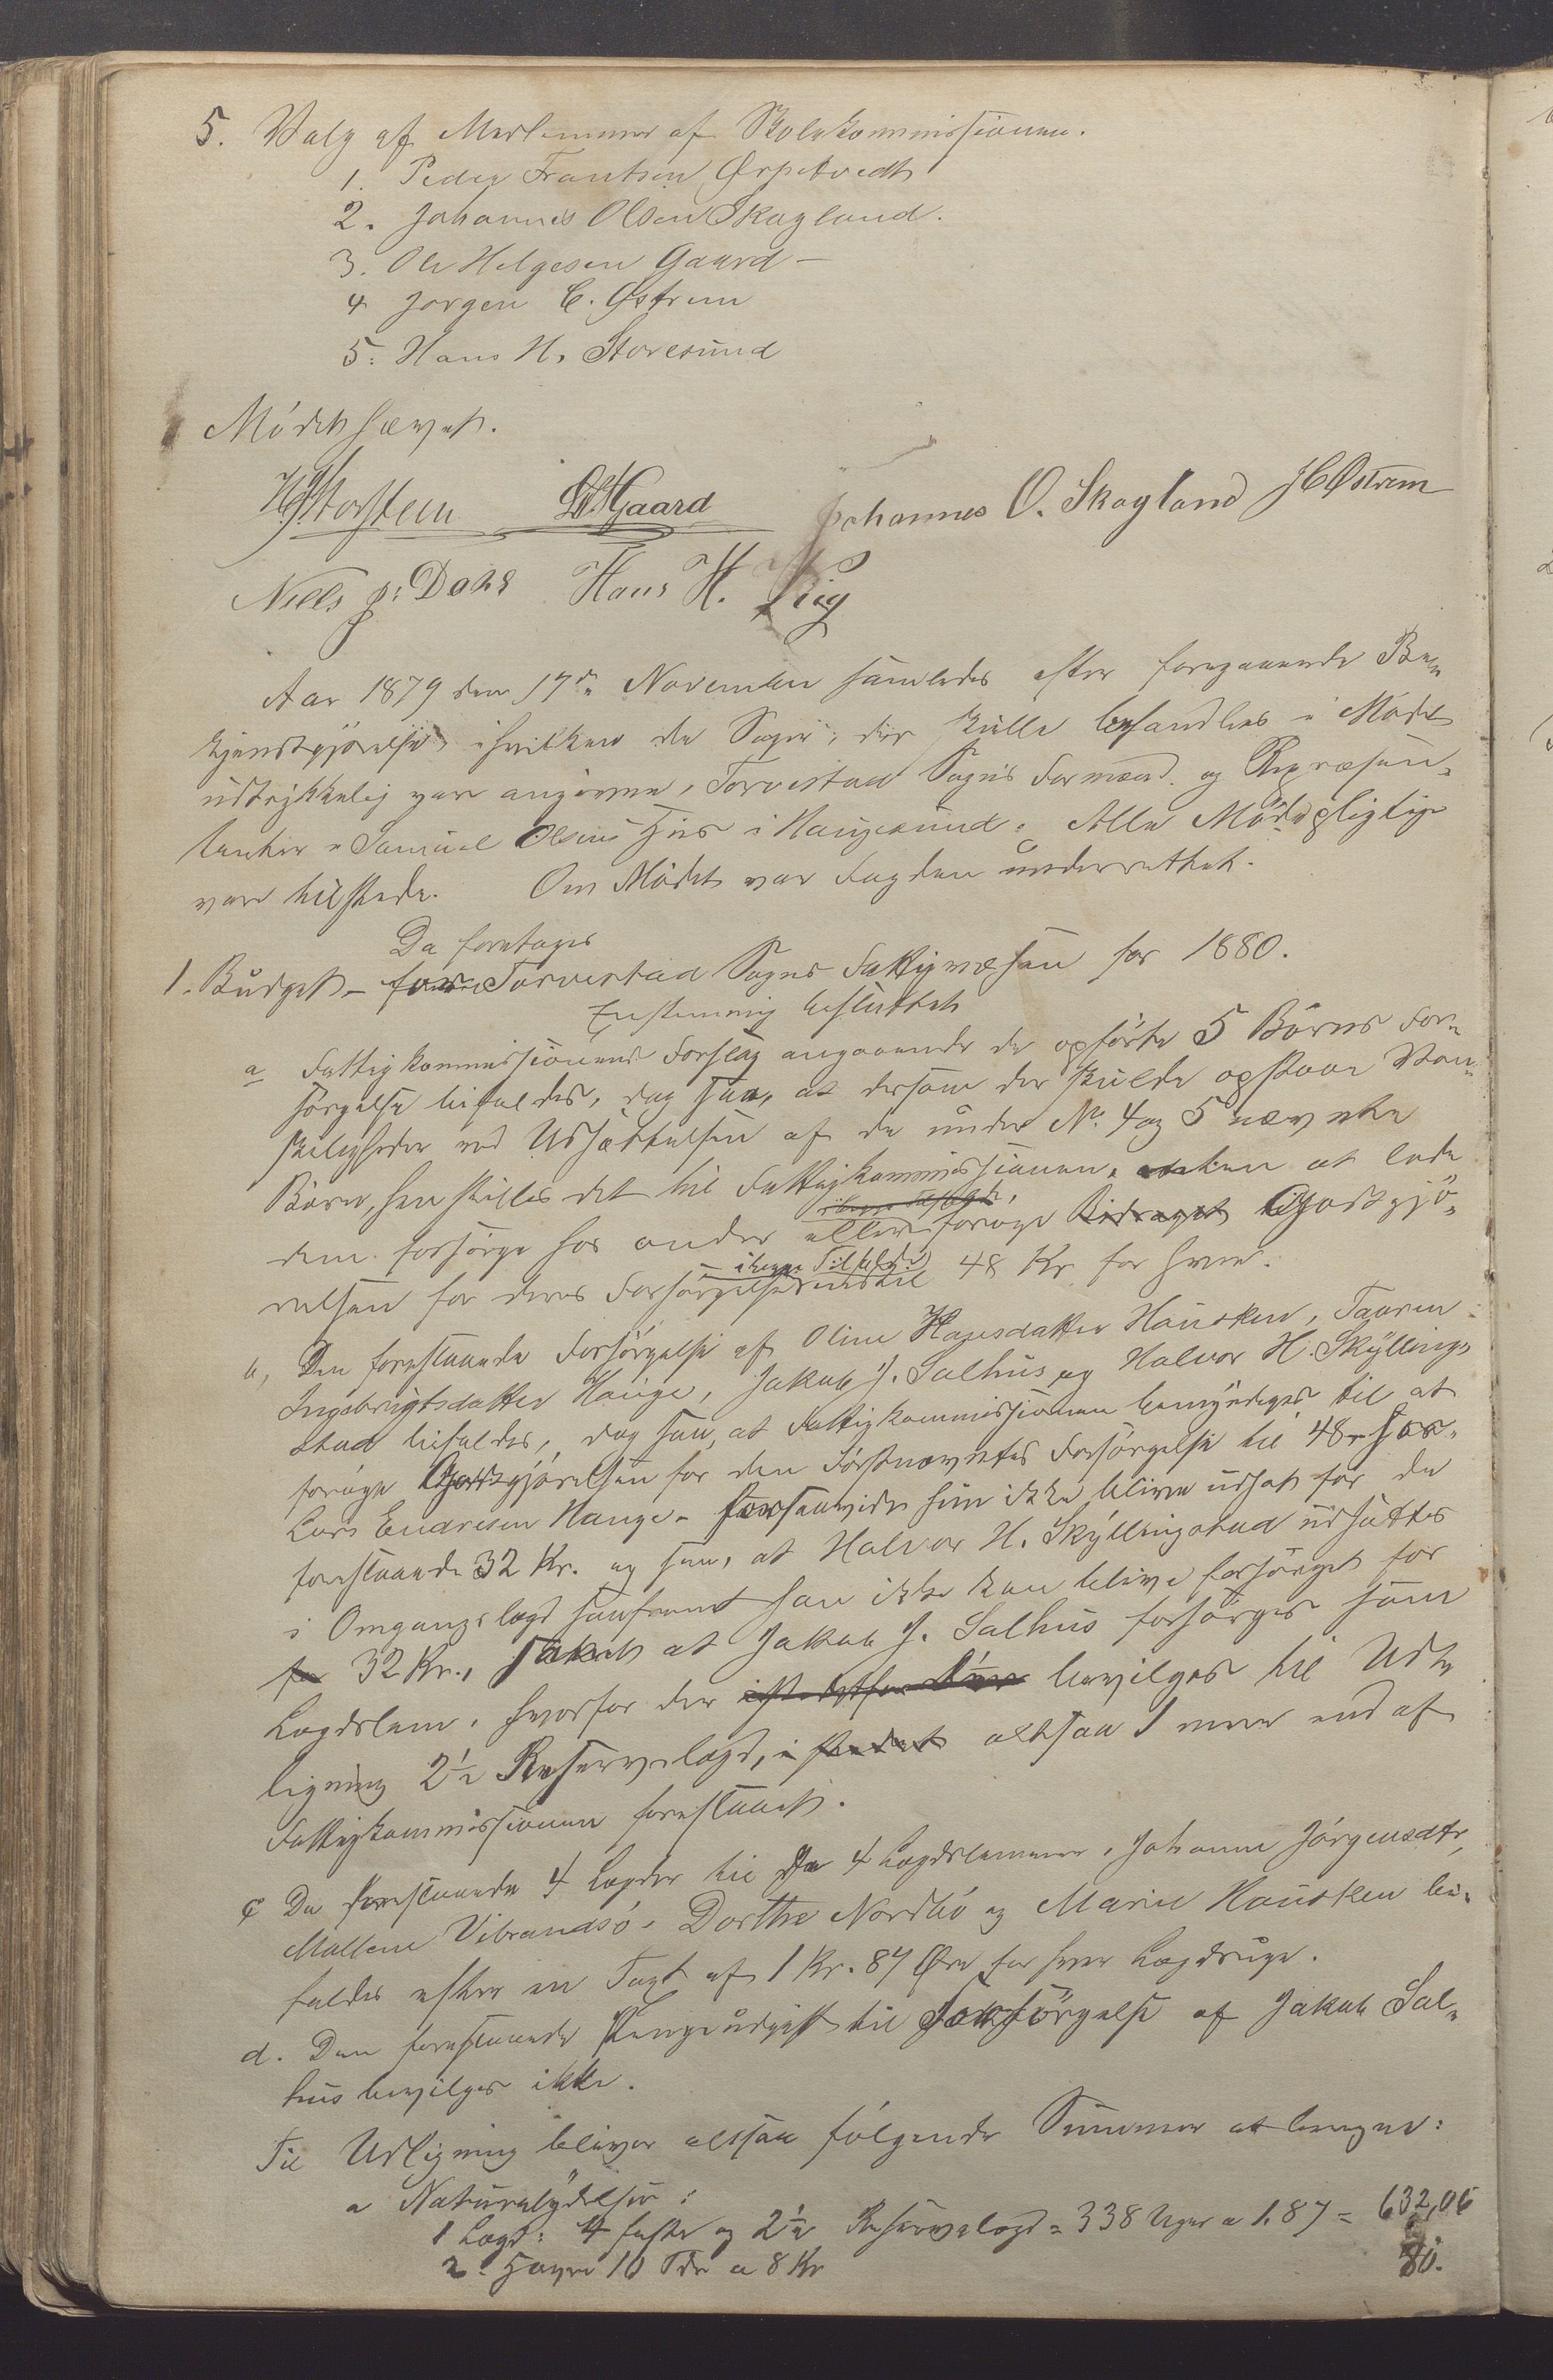 5. Valg af Medlemmer af Skolekommissionen.
1. Peder Frantsen Ørpetvedt
2. Johannes Olsen Skagland.
3. Ole Helgesen Gaard –
4 Jørgen C. Østrem
5. Hans H. Storesund
Mödet hævet.
Gaard Johannes O. Skagland JCØstrem
Niels J. Dahs Hans H. Liig
Aar 1879 den 17de November samledes efter foregaaende Be-
kjendtgjörelse, i hvilken de Sager, der skulle behandles i Mödet
udtrykkelig vare angivne, Torvestad Sogns Formænd og Repræsen-
tanter i Samuel Olsens Huus i Haugesund. Alle Mödepligtige
vare tilstede. Om Mödet var Fogden underrettet.
Da foretages
1. Budget – for Torvestad Sogns Fattigvæsen for 1880.
Enstemmig besluttet
a Fattigkommissionens Forslag angaaende de opförte 5 Börns For-
sörgelse bifaldes, dog saa, at dersom der skulde opstaa Van-
skeligheder ved Udsættelsen af de under No. 4 og 5 nævnte
Börn, henstilles det til Fattigkommissionen, enten at lade
dem forsörge hos andre eller foröge Bidraget Godtgjö-
i begge Tilfælde
relsen for deres Forsörgelse indtil 48 Kr for hver.
b, Den foreslaaede Forsörgelse af Oline Hansdatter Hausken, Taaren
Ingebrigtsdatter Hauge, Jakob J. Salhus og Halvor H. Skyllings-
stad bifaldes, dog saa, at Fattigkommissionen bemyndiges til at
foröge Godtgjörelsen for den Förstnævntes Forsörgelse til 48 – hos
Lars Endresen Hauge – forsaavidt hun ikke bliver udsat for de
foreslaaede 32 Kr. og saa, at Halvor H. Skyllingstad udsættes
i Omgangslægd saafremt han ikke kan blive forsörget for
for 32 Kr., samt at Jakob J. Salhus forsörges som
Lægdslem, hvorfor der bevilges til Udt
ligning 2½ Reservelægd, i stedet altsaa 1 mere end af
Fattigkommissionen foreslaaet.
c De foreslaaede 4 Lægder til de 4 Lægdslemmer, Johanne Jörgensdtr,
Mallene Vibrandsö, Dorthe Nordbö og Marie Hausken bi-
faldes efter en Taxt af 1 Kr. 87 Øre for hver Lægdsuge.
d. Den foreslaaede Pengeudgift til Forsörgelse af Jakob Sal-
hus bevilges ikke.
Til Udligning bliver altsaa fölgende Summer at beregne:
a Naturalydelser:
1 Lægd: 4 faste og 2½ Reservelægd = 338 Uger a 1.87 = 632,06
2. Havre 10 Tdr a 8 Kr 80.